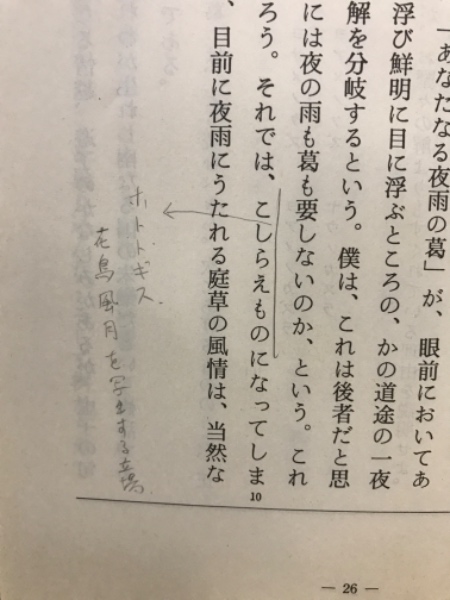 「あなたなる夜雨の葛」が、眼前においてあ
浮び鮮明に目に浮ぶところの、かの道途の一夜
解を分岐するという。僕は、これは後者だと思
には夜の雨も葛も要しないのか、という。これ
ろう。それでは、こしらえものになってしま
、目前に夜雨にうたれる庭草の風情は、当然な
ホトトギス
花鳥風月を写生する立場
10
— 26 —